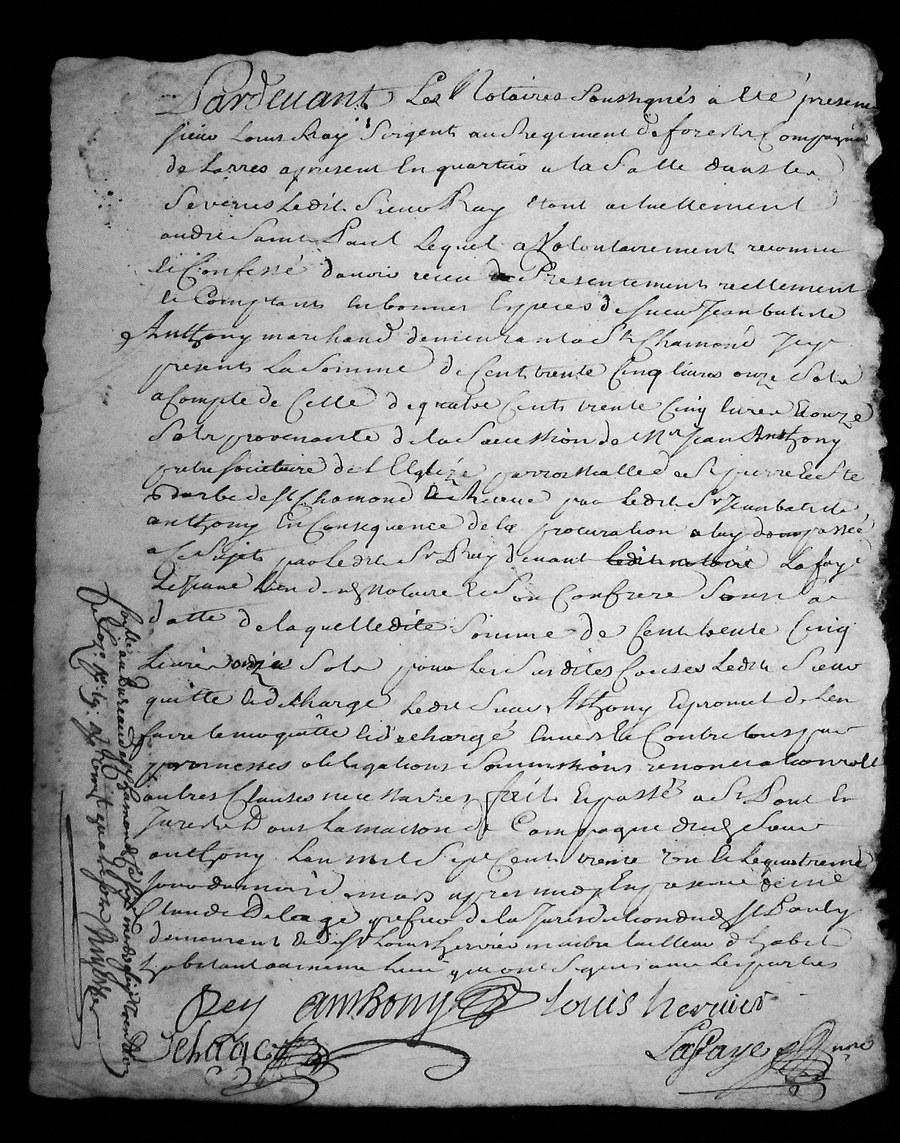 Pardevant Les Notaires Soussignés a Eté present
sieur Louis Ray Sergent au Regiment de forest Compagnie
de Larres apresent En quartier a la Salle dans les
Sevenes Ledit Sieur Ray Etant actuellement
audit Saint Paul Lequel a Volontairement reconnu
et Confessé d'avoir receu Presentement reellement
et Comptant En bonnes Especes de sieur Jean batiste
Anthony marchand demeurant a St Chamond Icy
present La Somme de Cent trente Cinq livres onze Sols
a Compte de Celle de quatre Cent trente Cinq livres Et onze
Sols provenante de la Sucession de Mr Jean Anthony
pretre societaire de L'Eglize parroissialle de St pierre Et Ste
barbe de St Chamond receue par Ledit Sr Jean batiste
anthony En Consequence de la procuration a luy passée
a Ce Sujet par Ledit Sr Ray devant ledit notaire Lafaye
Lejeune Notaire Et Son Confrere Sous sa
datte de laquelle dite Somme de Cent trente Cinq
Livres onze Sols pour les Susdites Causes Ledit Sieur
quitte Et decharge Ledit Sieur Anthony Et promet de L'en
faire tenir quitte Et dechargé Envers Et Contre tous par
promesses obligations Soumissions renonciations Et
autres Clauses necessaires fait Et passé a St Paul En
Jarest Dans La maison de Campagne dudit Sieur
anthony L'an mil Sept Cent trente un Et Le quatrieme
jour du mois mars apres midy En presence de me
Claude Delage greffier de la Jurisdiction dudit St Paul y
demeurant Et de St Louis hervier maitre tailleur d'habit
habitant au meme Lieu qui ont Signés avec Les parties
Rey anthony Louis hervier
Delage Lafaye nore
au Bureau de St Chamond